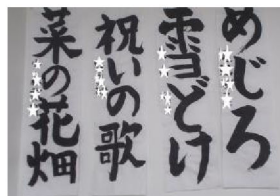 めじろ
雪どけ
祝いの歌
菜の花畑